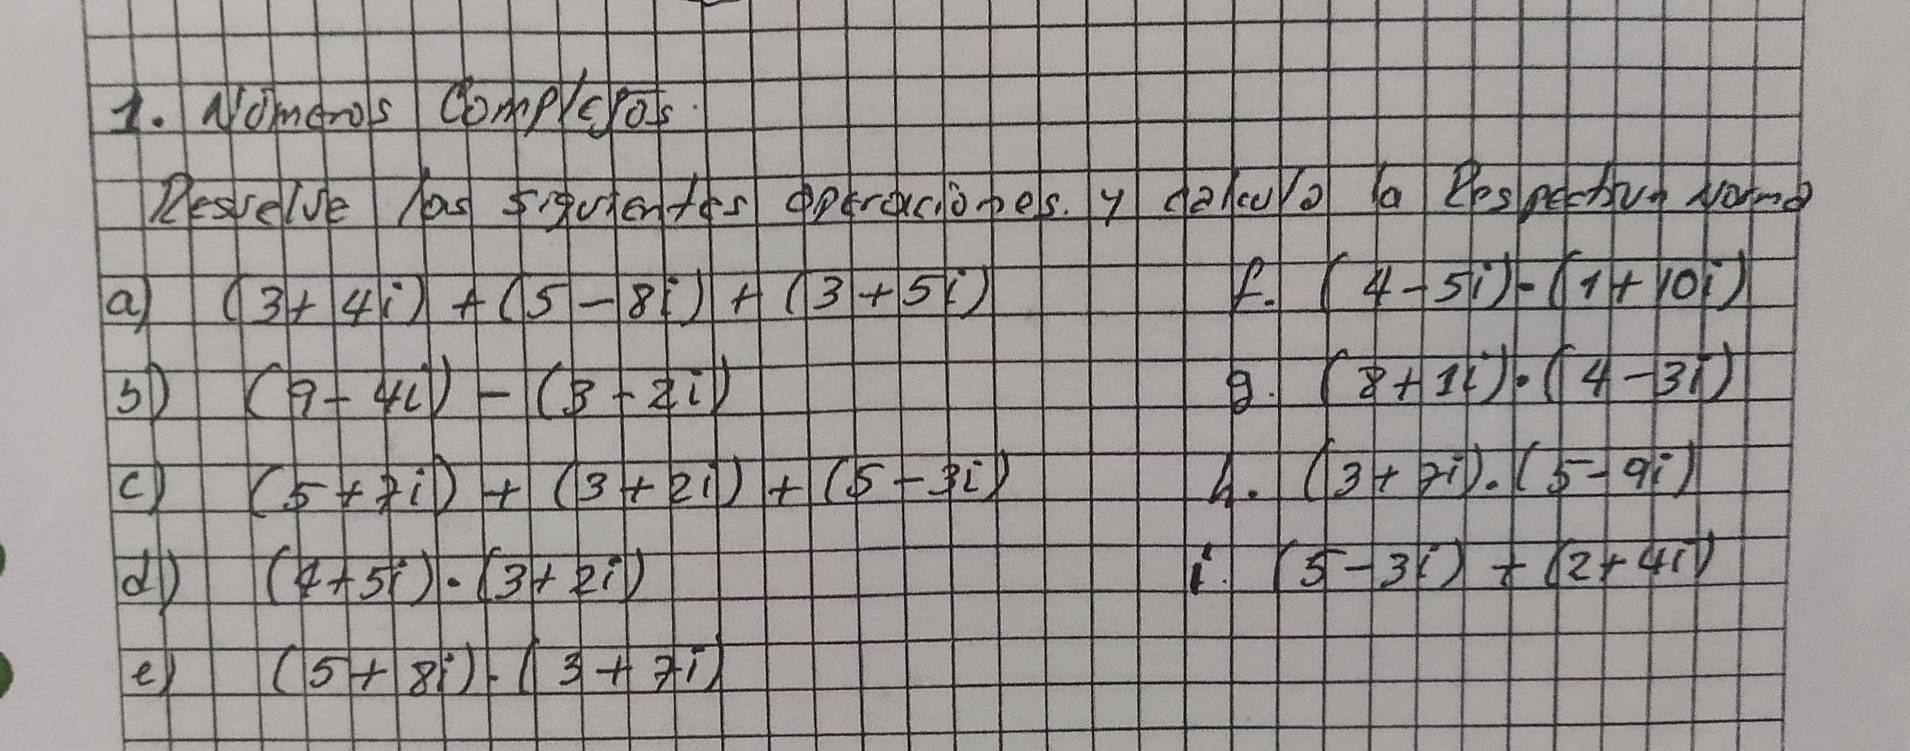 1. Números Complejos.
Resuelve las siguientes operaciones. y calcula la Respectiva Norma
a) (3+4i) + (5-8i) + (3+5i)
b) (9-4i) - (3-2i)
c) (5+7i) + (3+2i) + (5-3i)
d) (4+5i)·(3+2i)
e) (5+8i)·(3+7i)
f. (4-5i)-(1+10i)
g. (8+1i)·(4-3i)
h. (3+7i)·(5-9i)
i. (5-3i) + (2+4i)